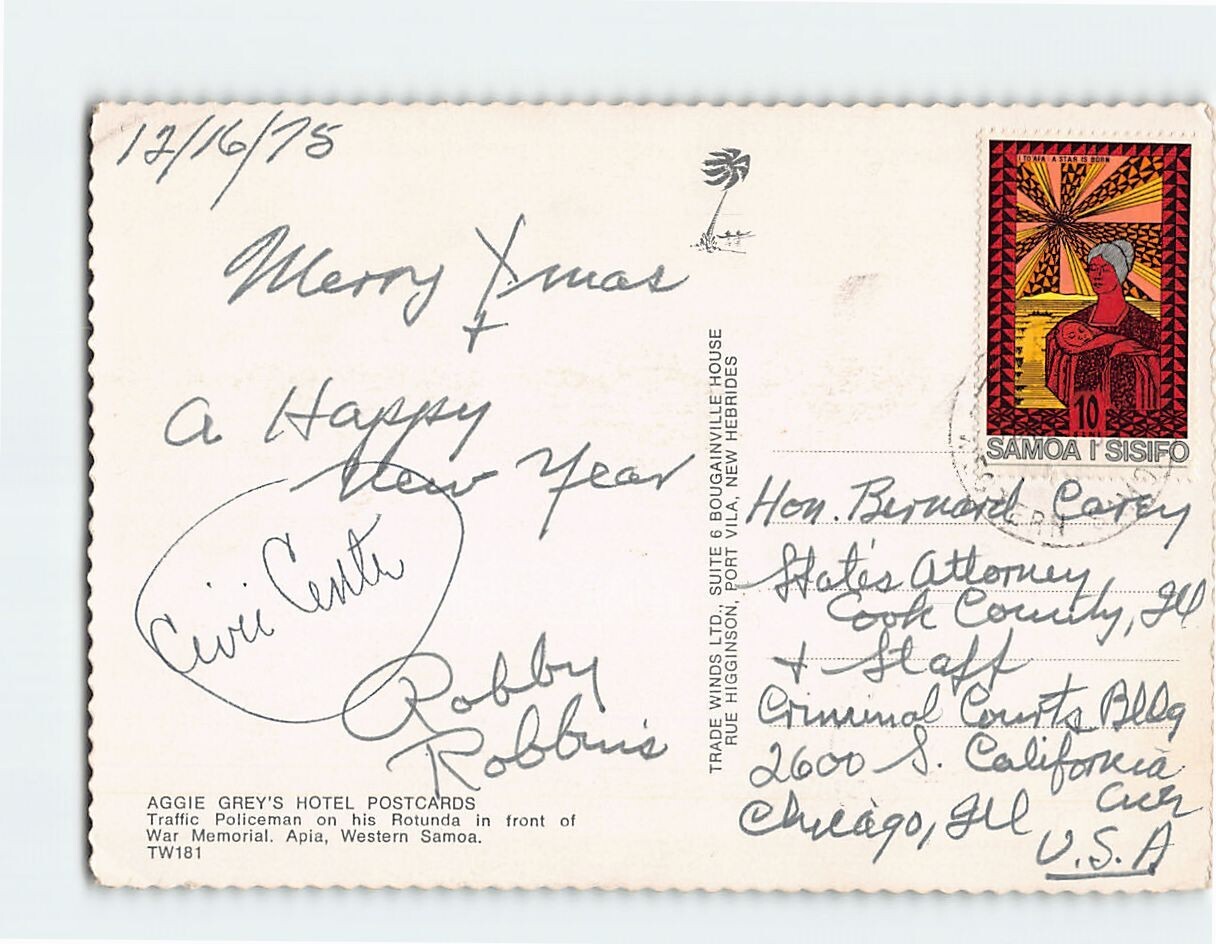 12/16/75
Merry Xmas
+
A Happy
New Year
Civic Center
Robby
Robbins
AGGIE GREY'S HOTEL POSTCARDS
Traffic Policeman on his Rotunda in front of
War Memorial. Apia, Western Samoa.
TW181
TRADE WINDS LTD., SUITE 6 BOUGAINVILLE HOUSE
RUE HIGGINSON, PORT VILA, NEW HEBRIDES
I TO AFA A STAR IS BORN
10
SAMOA I SISIFO
Hon. Bernard Carey
State's Attorney
Cook County, Ill
+ Staff
Criminal Courts Bldg
2600 S. California
Ave
Chicago, Ill
U.S.A